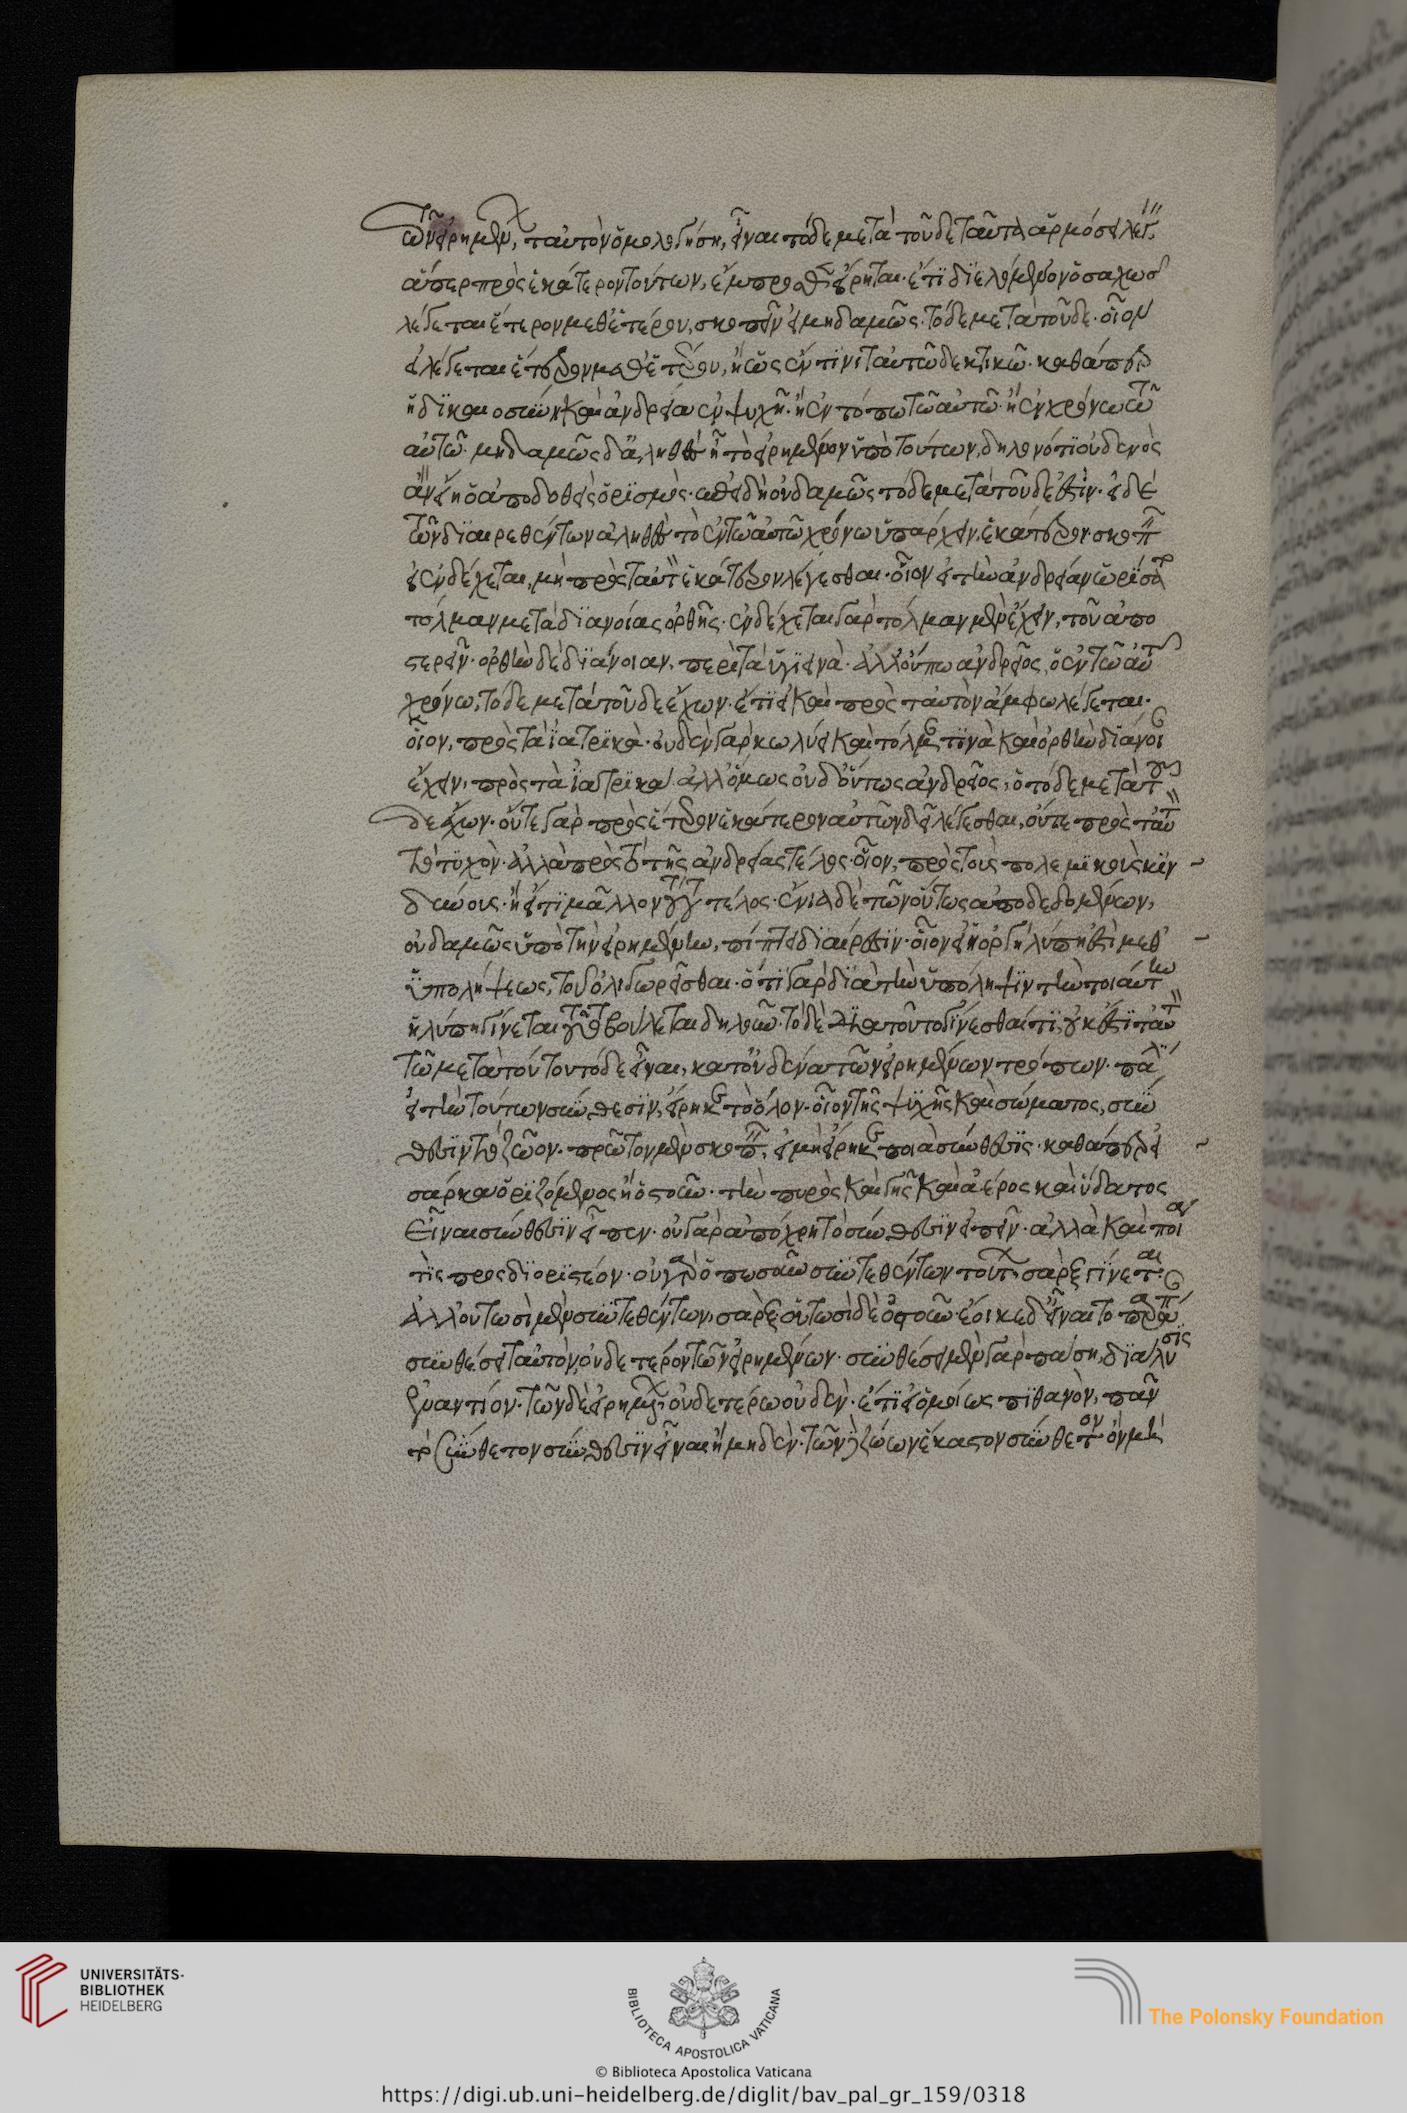 τῶν εἰρημένων, ταυτὸν ὁμολογήση, εἶναι τόδε μετὰ τοῦδε ταῦτα ἁρμόσει λέγειν,
ἅπερ πρὸς ἑκάτερον τούτων, ἔμπροσθεν εἴρηται. ἔτι διελόμενον ὁσαχῶς
λέγεται ἕτερον μεθ' ἑτέρου, σκοπεῖν εἰ μηδαμῶς. τόδε μετὰ τοῦδε. οἷον
εἰ λέγεται ἕτερον μεθ' ἑτέρου, ἢ ὡς ἐν τινὶ ταὐτῶ δεκτικῶ. καθάπερ
ἡ δικαιοσύνη καὶ ἀνδρεία ἐν ψυχῆ. ἢ ἐν τόπω τῶ αὐτῶ. ἢ ἐν χρόνω τῶ
αὐτῶ. μηδαμῶς δ' ἀληθὲς ἦ τὸ εἰρημένον ὑπὸ τούτων, δῆλον ὅτι οὐδενὸς
ἂν εἴη ὁ ἀποδοθεὶς ὁρισμός. ἐπειδὴ οὐδαμῶς τόδε μετὰ τοῦδε ἐστίν. εἰ δὲ
τῶν διαιρεθέντων ἀληθὲς τὸ ἐν τῶ αὐτῶ χρόνω ὑπάρχειν, ἑκάτερον. σκοπεῖν
εἰ ἐνδέχεται, μὴ πρὸς ταυτὸν ἑκάτερον λέγεσθαι. οἷον εἰ τὴν ἀνδρείαν ὡρίσατο
τόλμαν μετὰ διανοίας ὀρθῆς. ἐνδέχεται γὰρ τόλμαν μὲν ἔχειν, τοῦ ἀπο
στερεῖν. ὀρθὴν δὲ διάνοιαν, περὶ τὰ ὑγιεινὰ. ἀλλ' οὔπω ἀνδρεῖος, ὁ ἐν τῶ αὐτῶ
χρόνω, τόδε μετὰ τοῦδε ἔχων. ἔτι εἰ καὶ πρὸς ταυτὸν ἄμφω λέγεται.
οἷον, πρὸς τὰ ἰατρικὰ. οὐδὲν γὰρ κωλύει καὶ τόλμαν τινὰ καὶ ὀρθὴν διάνοιαν
ἔχειν, πρὸς τὰ ἰατρικὰ. ἀλλ' ὅμως οὐδ' οὕτως ἀνδρεῖος, ὁ τόδε μετὰ τοῦ
δε ἔχων. οὔτε γὰρ πρὸς ἕτερον ἑκάτερον αὐτῶν δεῖ λέγεσθαι, οὔτε πρὸς ταυτὸν
τὸ τυχὸν. ἀλλὰ πρὸς τὸ τῆς ἀνδρείας τέλος. οἷον, πρὸς τοὺς πολεμικοὺς κιν
δύνους. ἢ εἴ τι μᾶλλον τούτου τέλος. ἔνια δὲ τῶν οὕτως ἀποδεδομένων,
οὐδαμῶς ὑπὸ τὴν εἰρημένην, πίπτει διαίρεσιν. οἷον εἰ ἡ ὀργὴ λύπη ἐστὶ μεθ'
ὑπολήψεως, τοῦ ὀλιγωρεῖσθαι. ὅτι γὰρ διὰ τὴν ὑπόληψιν τὴν τοιαύτην
ἡ λύπη γίνεται τοῦτο βούλεται δηλοῦν. τὸ δὲ διὰ τοῦτο γίνεσθαί τι, οὐκ ἔστι ταυτὸν
τῶ μετὰ τούτου τόδε εἶναι, κατ' οὐδένα τῶν εἰρημένων τρόπων. πάλιν
εἰ τὴν τούτων σύνθεσιν, εἴρηκε τὸ ὅλον. οἷον τῆς ψυχῆς καὶ σώματος, σύν
θεσιν τὸ ζῶον. πρῶτον μὲν σκοπεῖν, εἰ μὴ εἴρηκε ποία σύνθεσις. καθάπερ εἰ
σάρκα ὁριζόμενος ἢ ὀστοῦν. τὴν πυρὸς καὶ γῆς καὶ ἀέρος καὶ ὕδατος
εἶναι σύνθεσιν εἶπεν. οὐ γὰρ ἀπόχρη τὸ σύνθεσιν εἰπεῖν. ἀλλὰ καὶ ποία
τὶς προσδιοριστέον. οὐ γὰρ ὁπωσοῦν συντεθέντων τούτων σὰρξ γίνεται.
ἀλλ' οὑτωσὶ μὲν συντεθέντων, σὰρξ οὑτωσὶ δὲ ὀστοῦν. ἔοικε δ' εἶναι τὸ παράπαν
συνθέσει ταυτὸν, οὐδέτερον τῶν εἰρημένων. συνθέσει μὲν γὰρ πάση, διάλυσις
ἐναντίον. τῶν δὲ εἰρημένων οὐδετέρω οὐδέν. ἔτι εἰ ὁμοίως πιθανὸν, πᾶν
τὸ σύνθετον σύνθεσιν εἶναι ἢ μηδέν. τῶν δὲ ζώων ἕκαστον σύνθετον ὂν μὲν
UNIVERSITÄTS-
BIBLIOTHEK
HEIDELBERG
BIBLIOTECA APOSTOLICA VATICANA
The Polonsky Foundation
© Biblioteca Apostolica Vaticana
https://digi.ub.uni-heidelberg.de/diglit/bav_pal_gr_159/0318